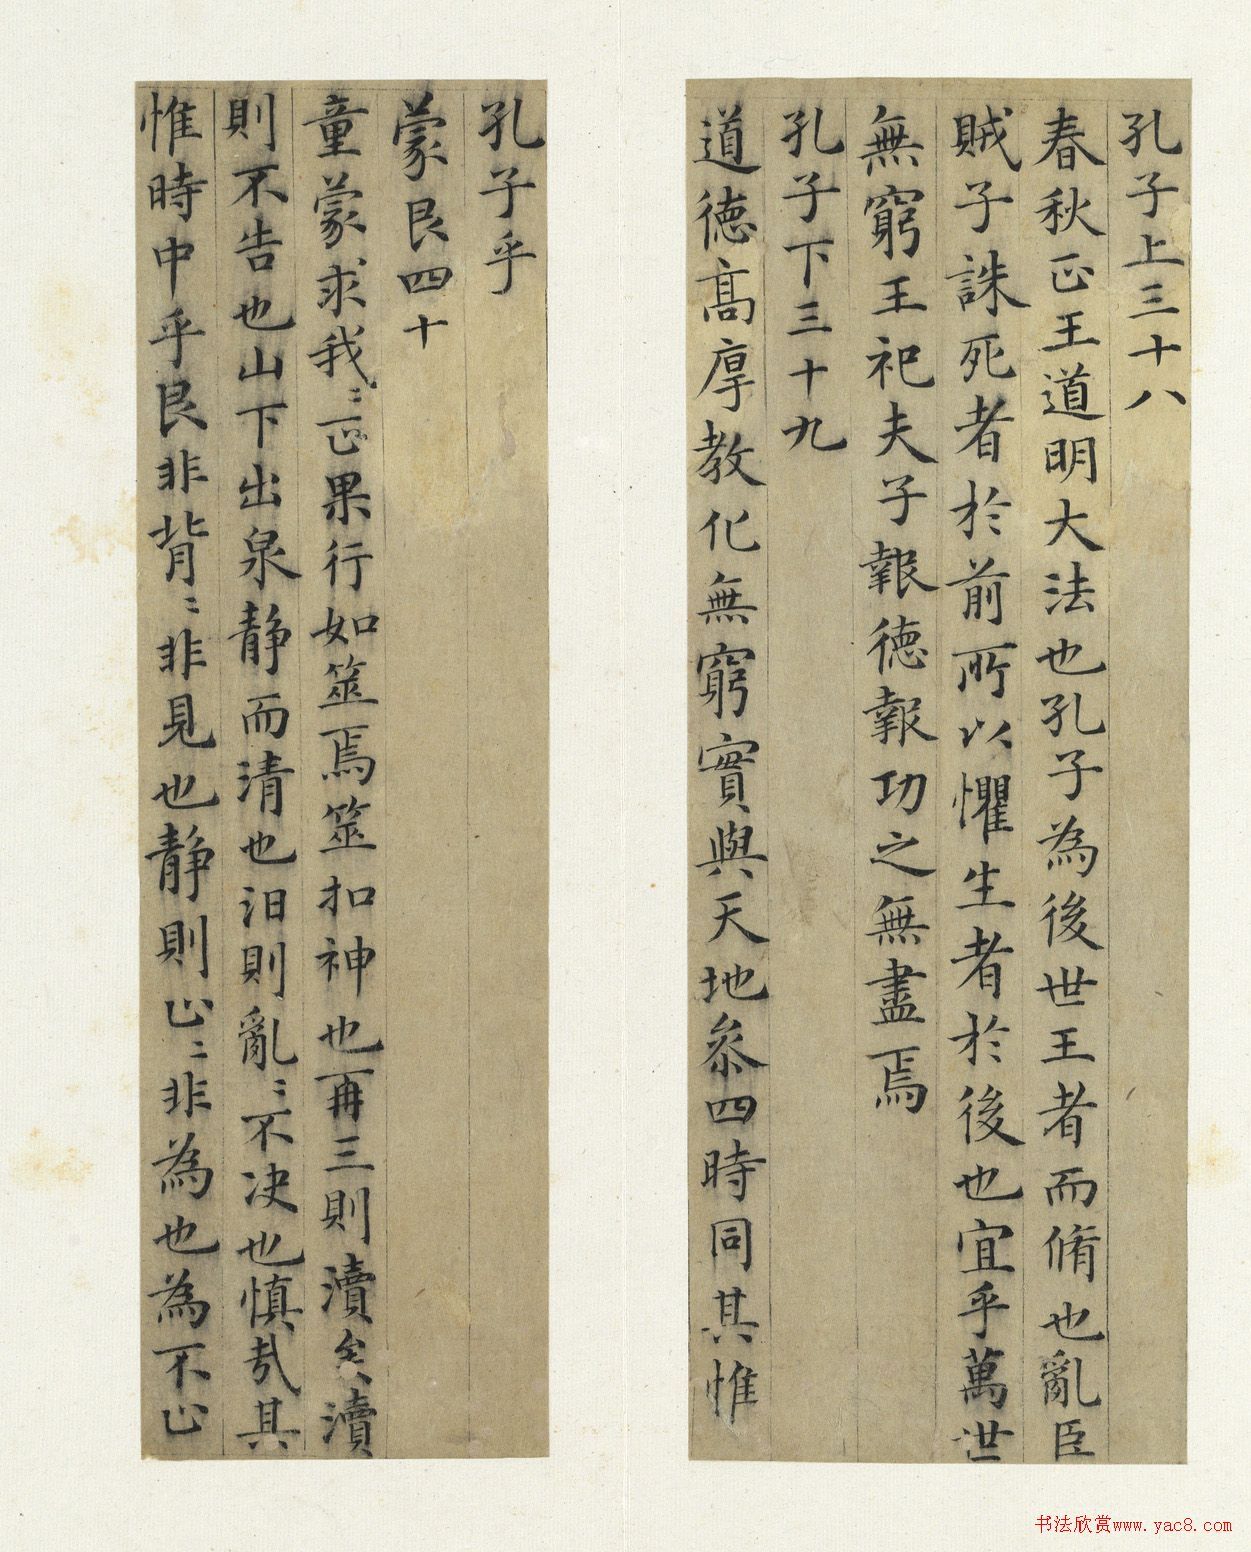 孔子上三十八
春秋正王道明大法也孔子為後世王者而脩也亂臣
賊子誅死者於前所以懼生者於後也宜乎萬世
無窮王祀夫子報德報功之無盡焉
孔子下三十九
道德高厚教化無窮實與天地叅四時同其惟
孔子乎
蒙艮四十
童蒙求我〻正果行如筮焉筮扣神也再三則瀆矣瀆
則不告也山下出泉静而清也汩則亂〻不决也慎哉其
惟時中乎艮非背〻非見也静則止〻非為也為不止
书法欣赏www.yac8.com